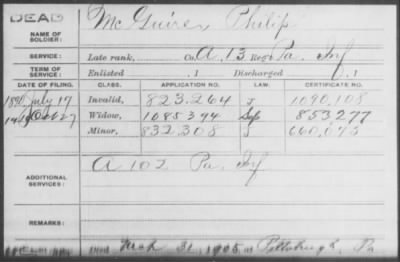 DEAD
NAME OF SOLDIER: McGuire, Philip
SERVICE: Late rank, Co. A, 13 Reg't Pa. Inf
TERM OF SERVICE: Enlisted , 1 Discharged , 1
DATE OF FILING. CLASS. APPLICATION NO. LAW. CERTIFICATE NO.
1890 July 17 Invalid, 823.264 J 1090,108
Widow, 1085394 853277
Minor, 832,308 S
ADDITIONAL SERVICES: A 102 Pa. Inf
REMARKS:
Mch 31, 1905 at Pittsburgh, Pa